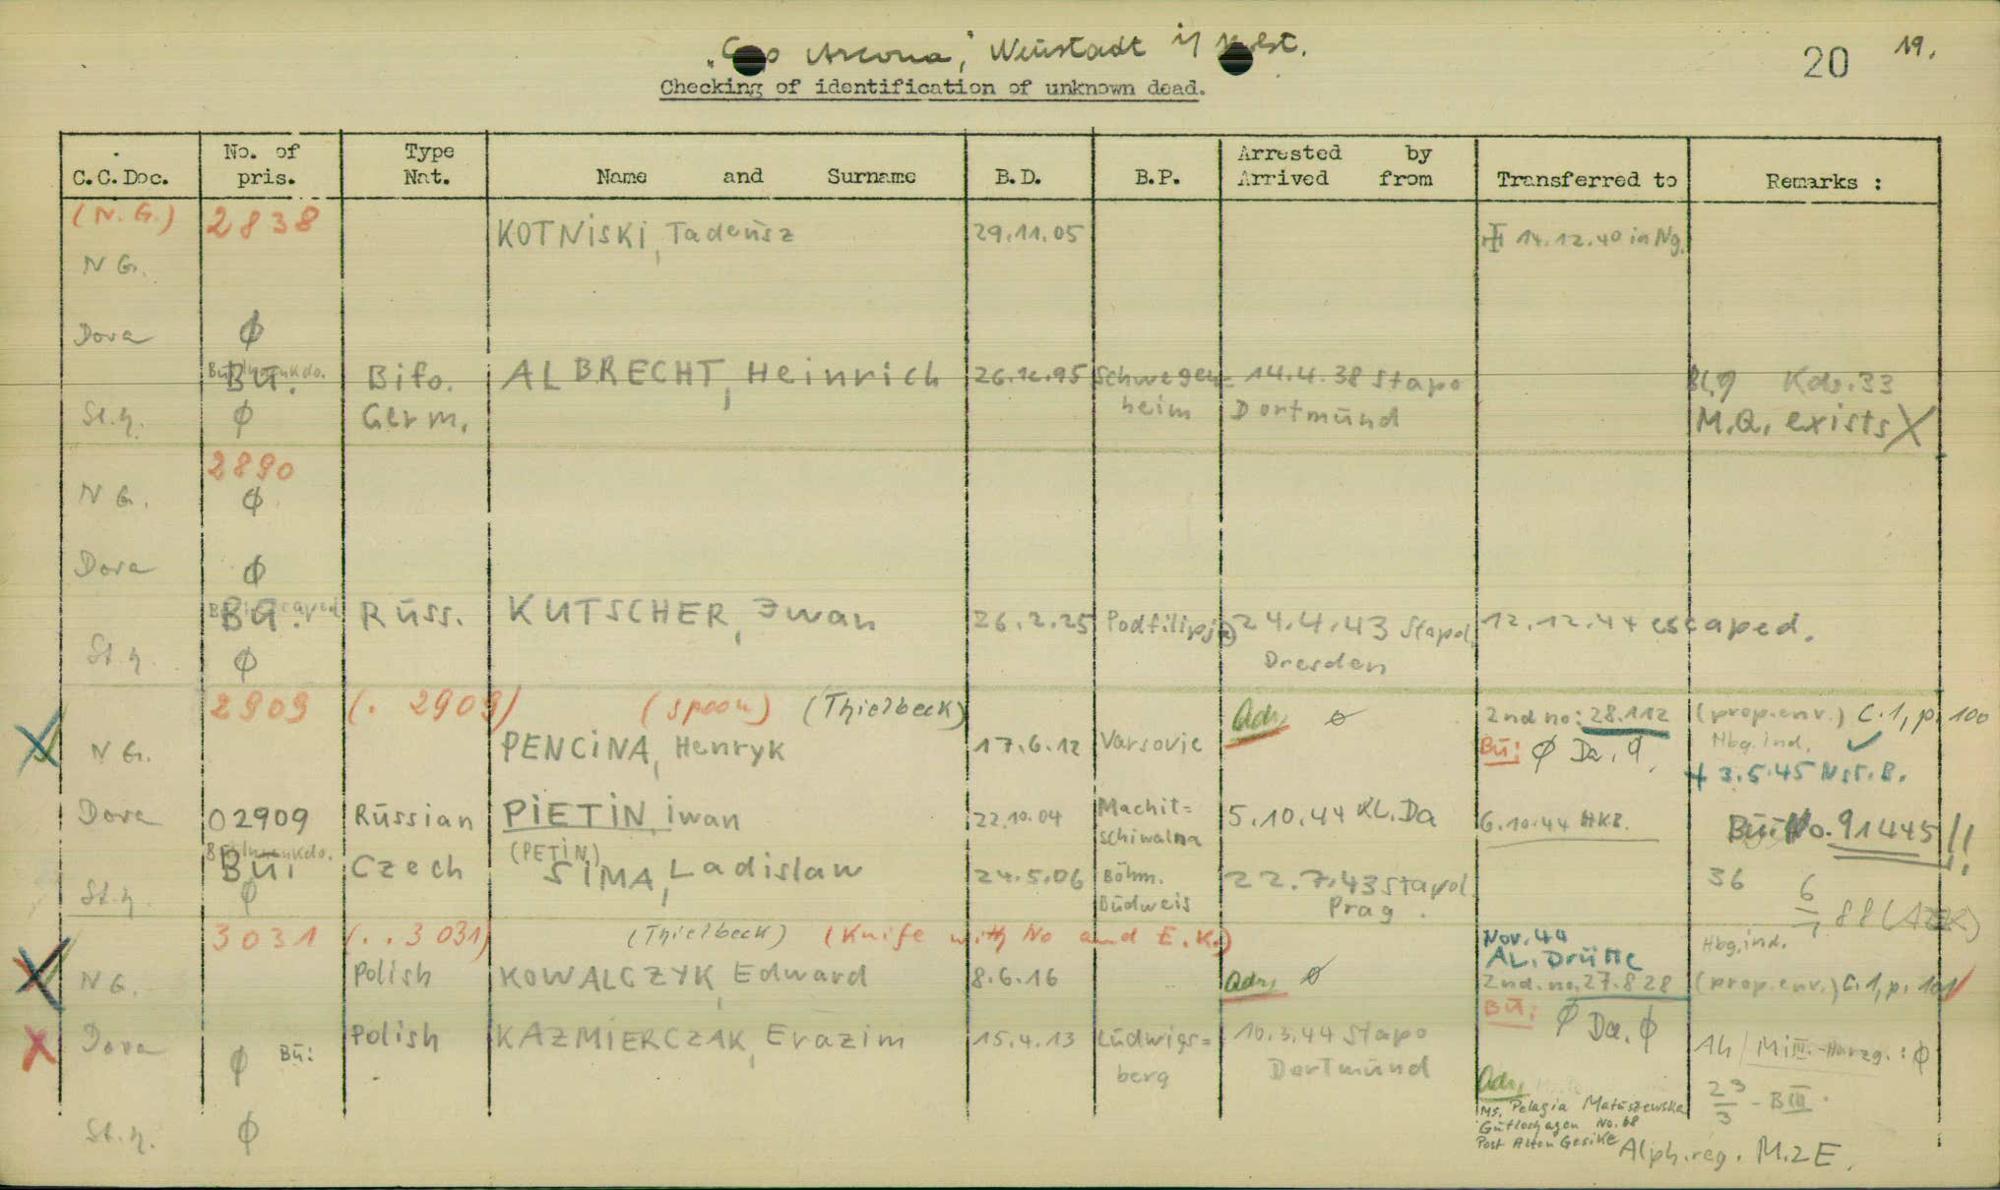 "Cap Arcona," Neustadt i/ Holst.
20 19.
Checking of identification of unknown dead.
C.C.Doc. No. of pris. Type Nat. Name and Surname B.D. B.P. Arrested by Arrived from Transferred to Remarks :
(N.G.) 2838 KOTNiSKi, Tadeusz 29.11.05 14.12.40 in Ng.
N G.
Dora Ø
Bu. Bifo. ALBRECHT, Heinrich 26.12.95 Schwegen= 14.4.38 Stapo Kdo.33
St.h. Ø Germ. heim Dortmund M.Q. exists X
2890
N G. Ø
Dora Ø
Bu. Russ. KUTSCHER, Iwan 26.2.25 Podfilipje 24.4.43 Stapol. 12.12.44 escaped.
St.h. Ø Dresden
2909 (. 2909) (spoon) (Thielbeck) Adr. ø 2nd no: 28.112 (prop.env.) C.1, p. 100
N G. PENCiNA, Henryk 17.6.12 Varsovie Bu: Ø Da. Ø Hbg.ind. ✓
+ 3.5.45 Nst.B.
Dora 02909 Russian PiETiN, iwan 22.10.04 Machit= 5.10.44 KL.Da 6.10.44 HKB. Bu No. 91445!!
(PETiN) schiwalna
Bu. Czech SIMA, Ladislaw 24.5.06 Böhm. 22.7.43 Stapol. 36
St.h. Ø Budweis Prag. 6/7 88
3031 (. . 3031) (Thielbeck) (Knife with No and E.K.) Nov. 44 Hbg.ind.
AL. Drütte
N G. Polish KOWALCZYK, Edward 8.6.16 Adr. ø 2nd. no. 27.828 (prop.env.) C.1, p. 101
Bu: Ø Da. Ø
Dora Ø Bu: Polish KAZMIERCZAK, Erazim 15.4.13 Ludwigs= 10.3.44 Stapo Ah / Mi III.-Harzg.: Ø
berg Dortmund
Adr. 23/3 - B III.
Ms. Pelagia Matuszewska
St.h. Ø Gutloshagen No. 68
Post Alten Gesike
Alph.reg. M.2E.